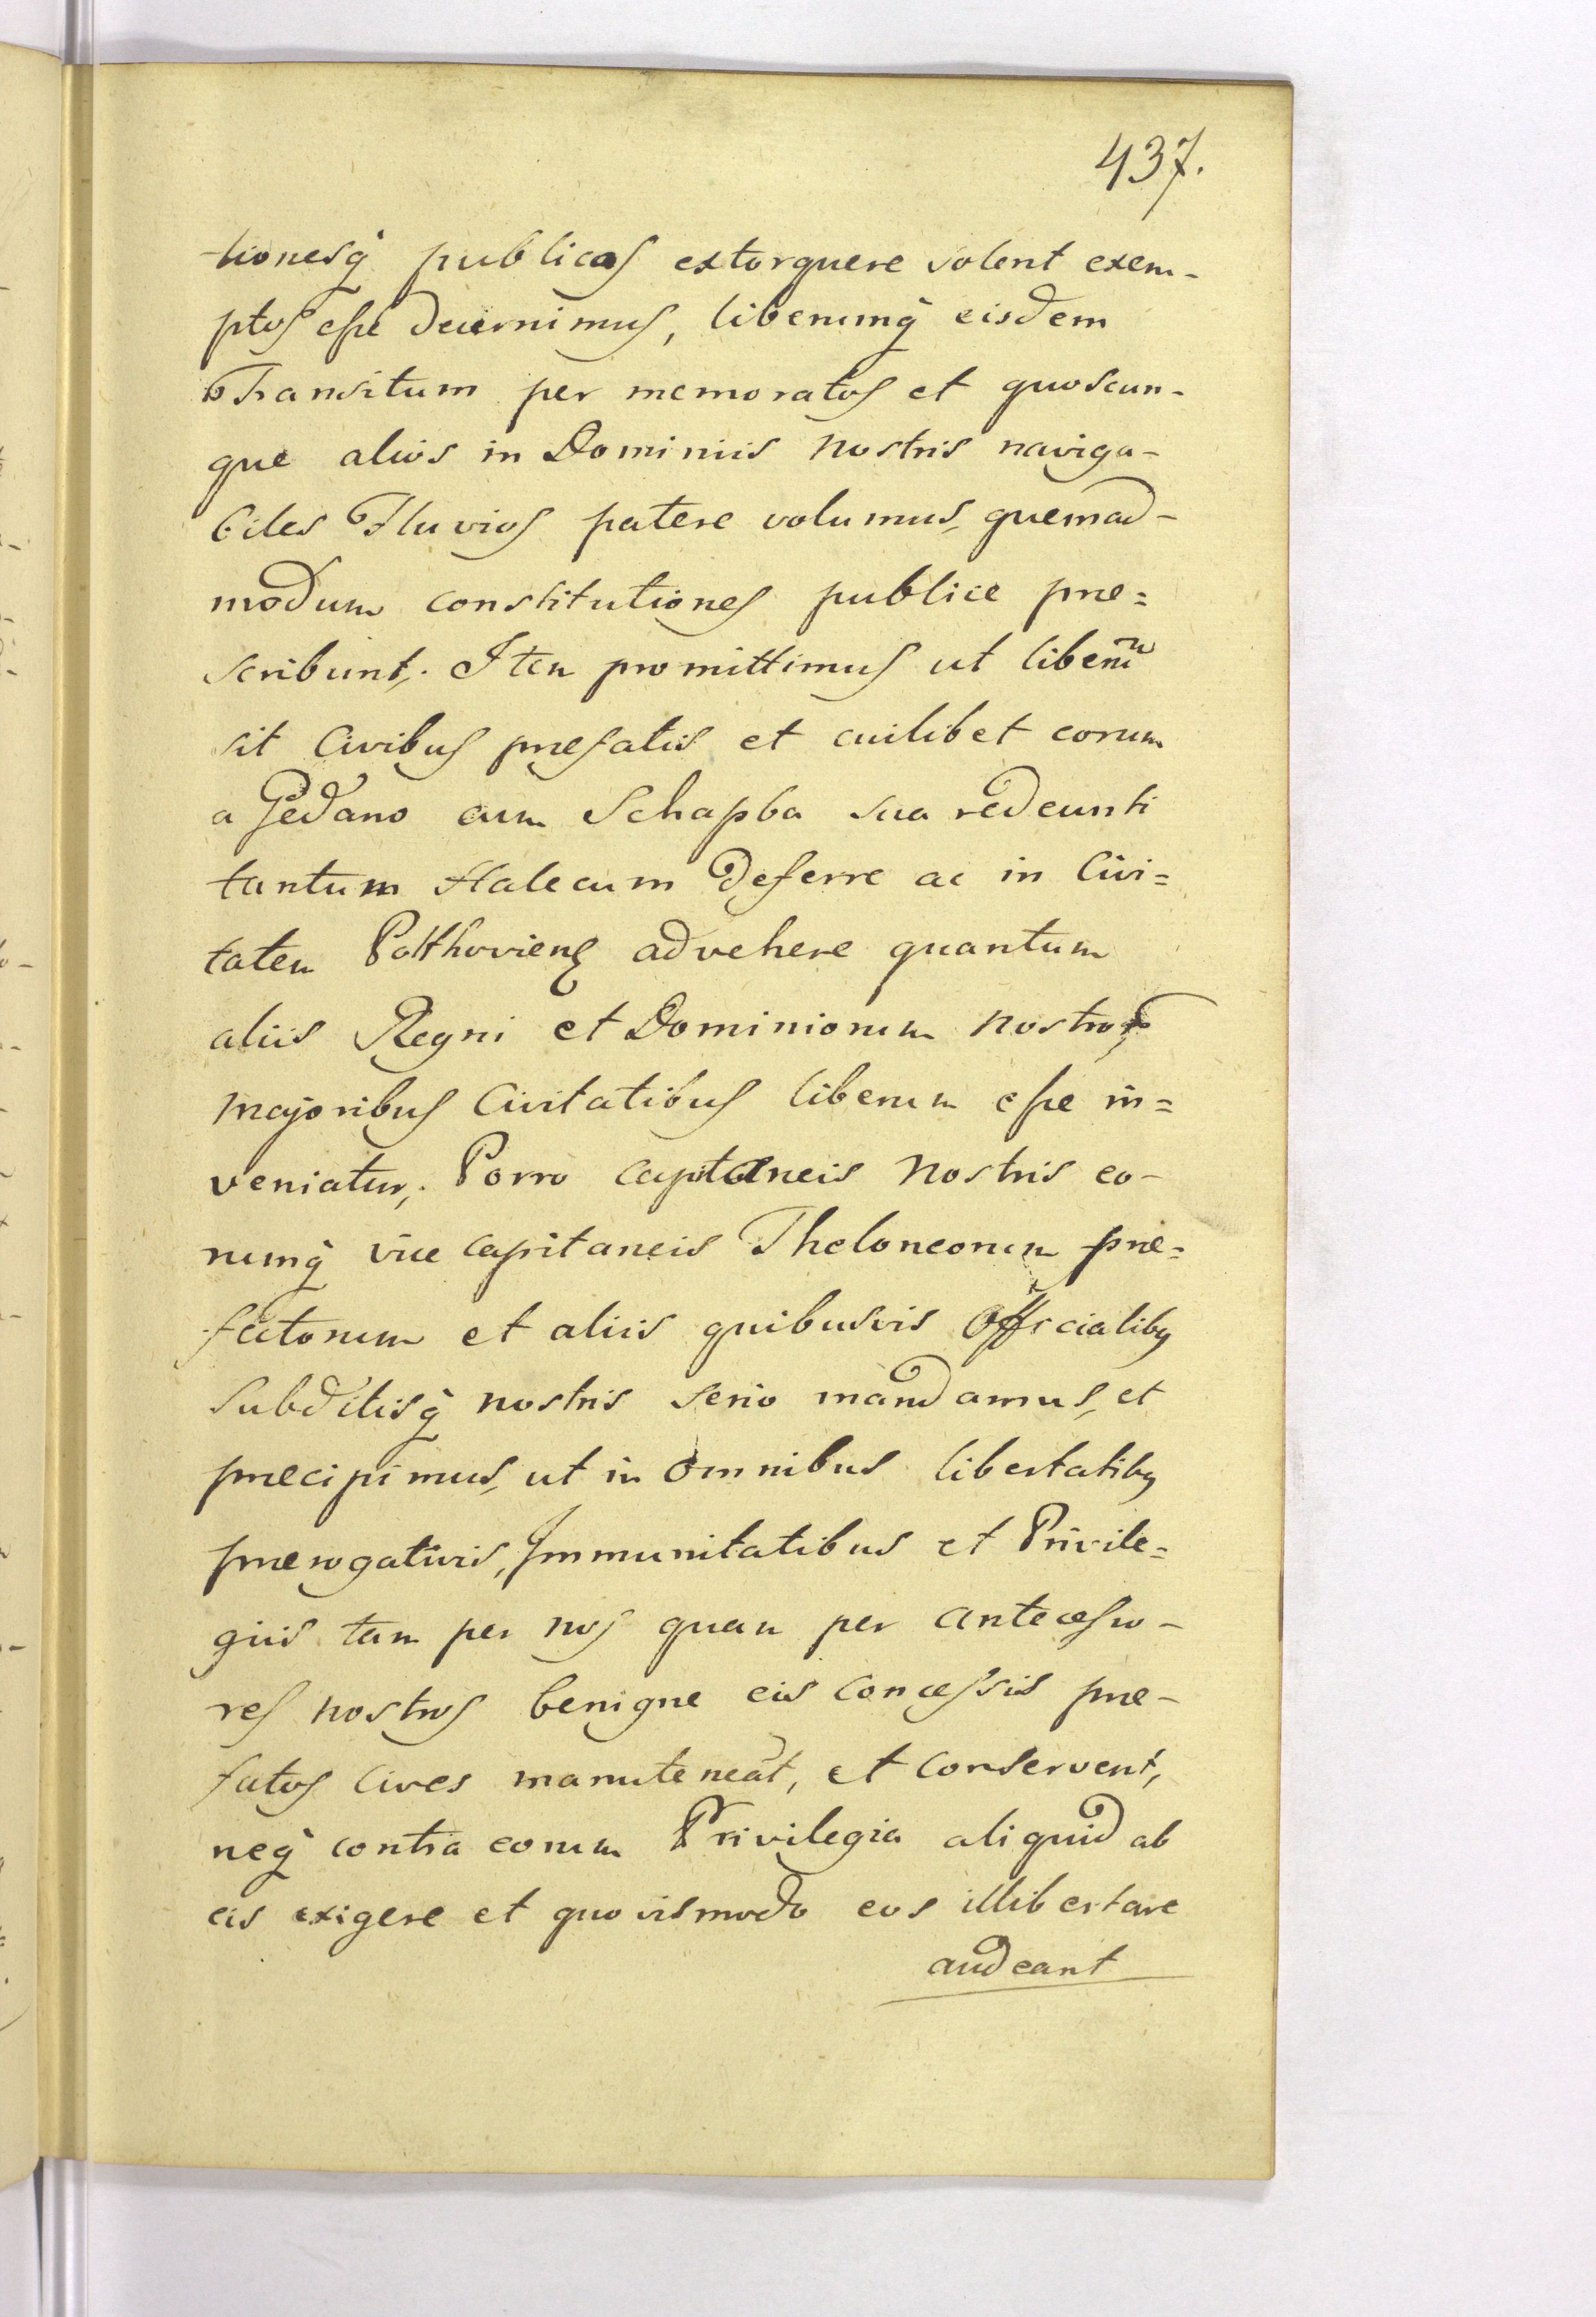 437.
tionesq́ publicas extorquere solent exem-
ptos esse decernimus, liberumq́ eisdem
Transitum per memoratos et quoscun-
que alios in Dominiis Nostris naviga-
biles Fluvios patere volumus, quemad-
modum constitutiones publice pre=
scribunt,. Item promittimus ut liberũ
sit Civibus prefatis et cuilibet eorum
a Gedano cum Schapba sua redeunti
tantum Halecum deferre ac in Civi=
tatem Polthovienȿ advehere quantum
aliis Regni et Dominiorum Nostroꝝ
Majoribus Civitatibus liberum esse in=
veniatur,. Porro Captaneis Nostris eo-
rumq́ vice Capitaneis Theloneorum pre=
fectorum et aliis quibusvis Officialibꝫ
Subditisq́ nostris serio mandamus, et
precipimus, ut in omnibus libertatibꝫ
prerogativis, Immunitatibus et Privile=
giis tam per nos quam per antecesso-
res nostros benigne eis concessis pre-
fatos Cives manuteneãt, et conservent,
neq́ contra eorum Privilegia aliquid ab
eis exigere et quovismodo eos illibertare
audeant